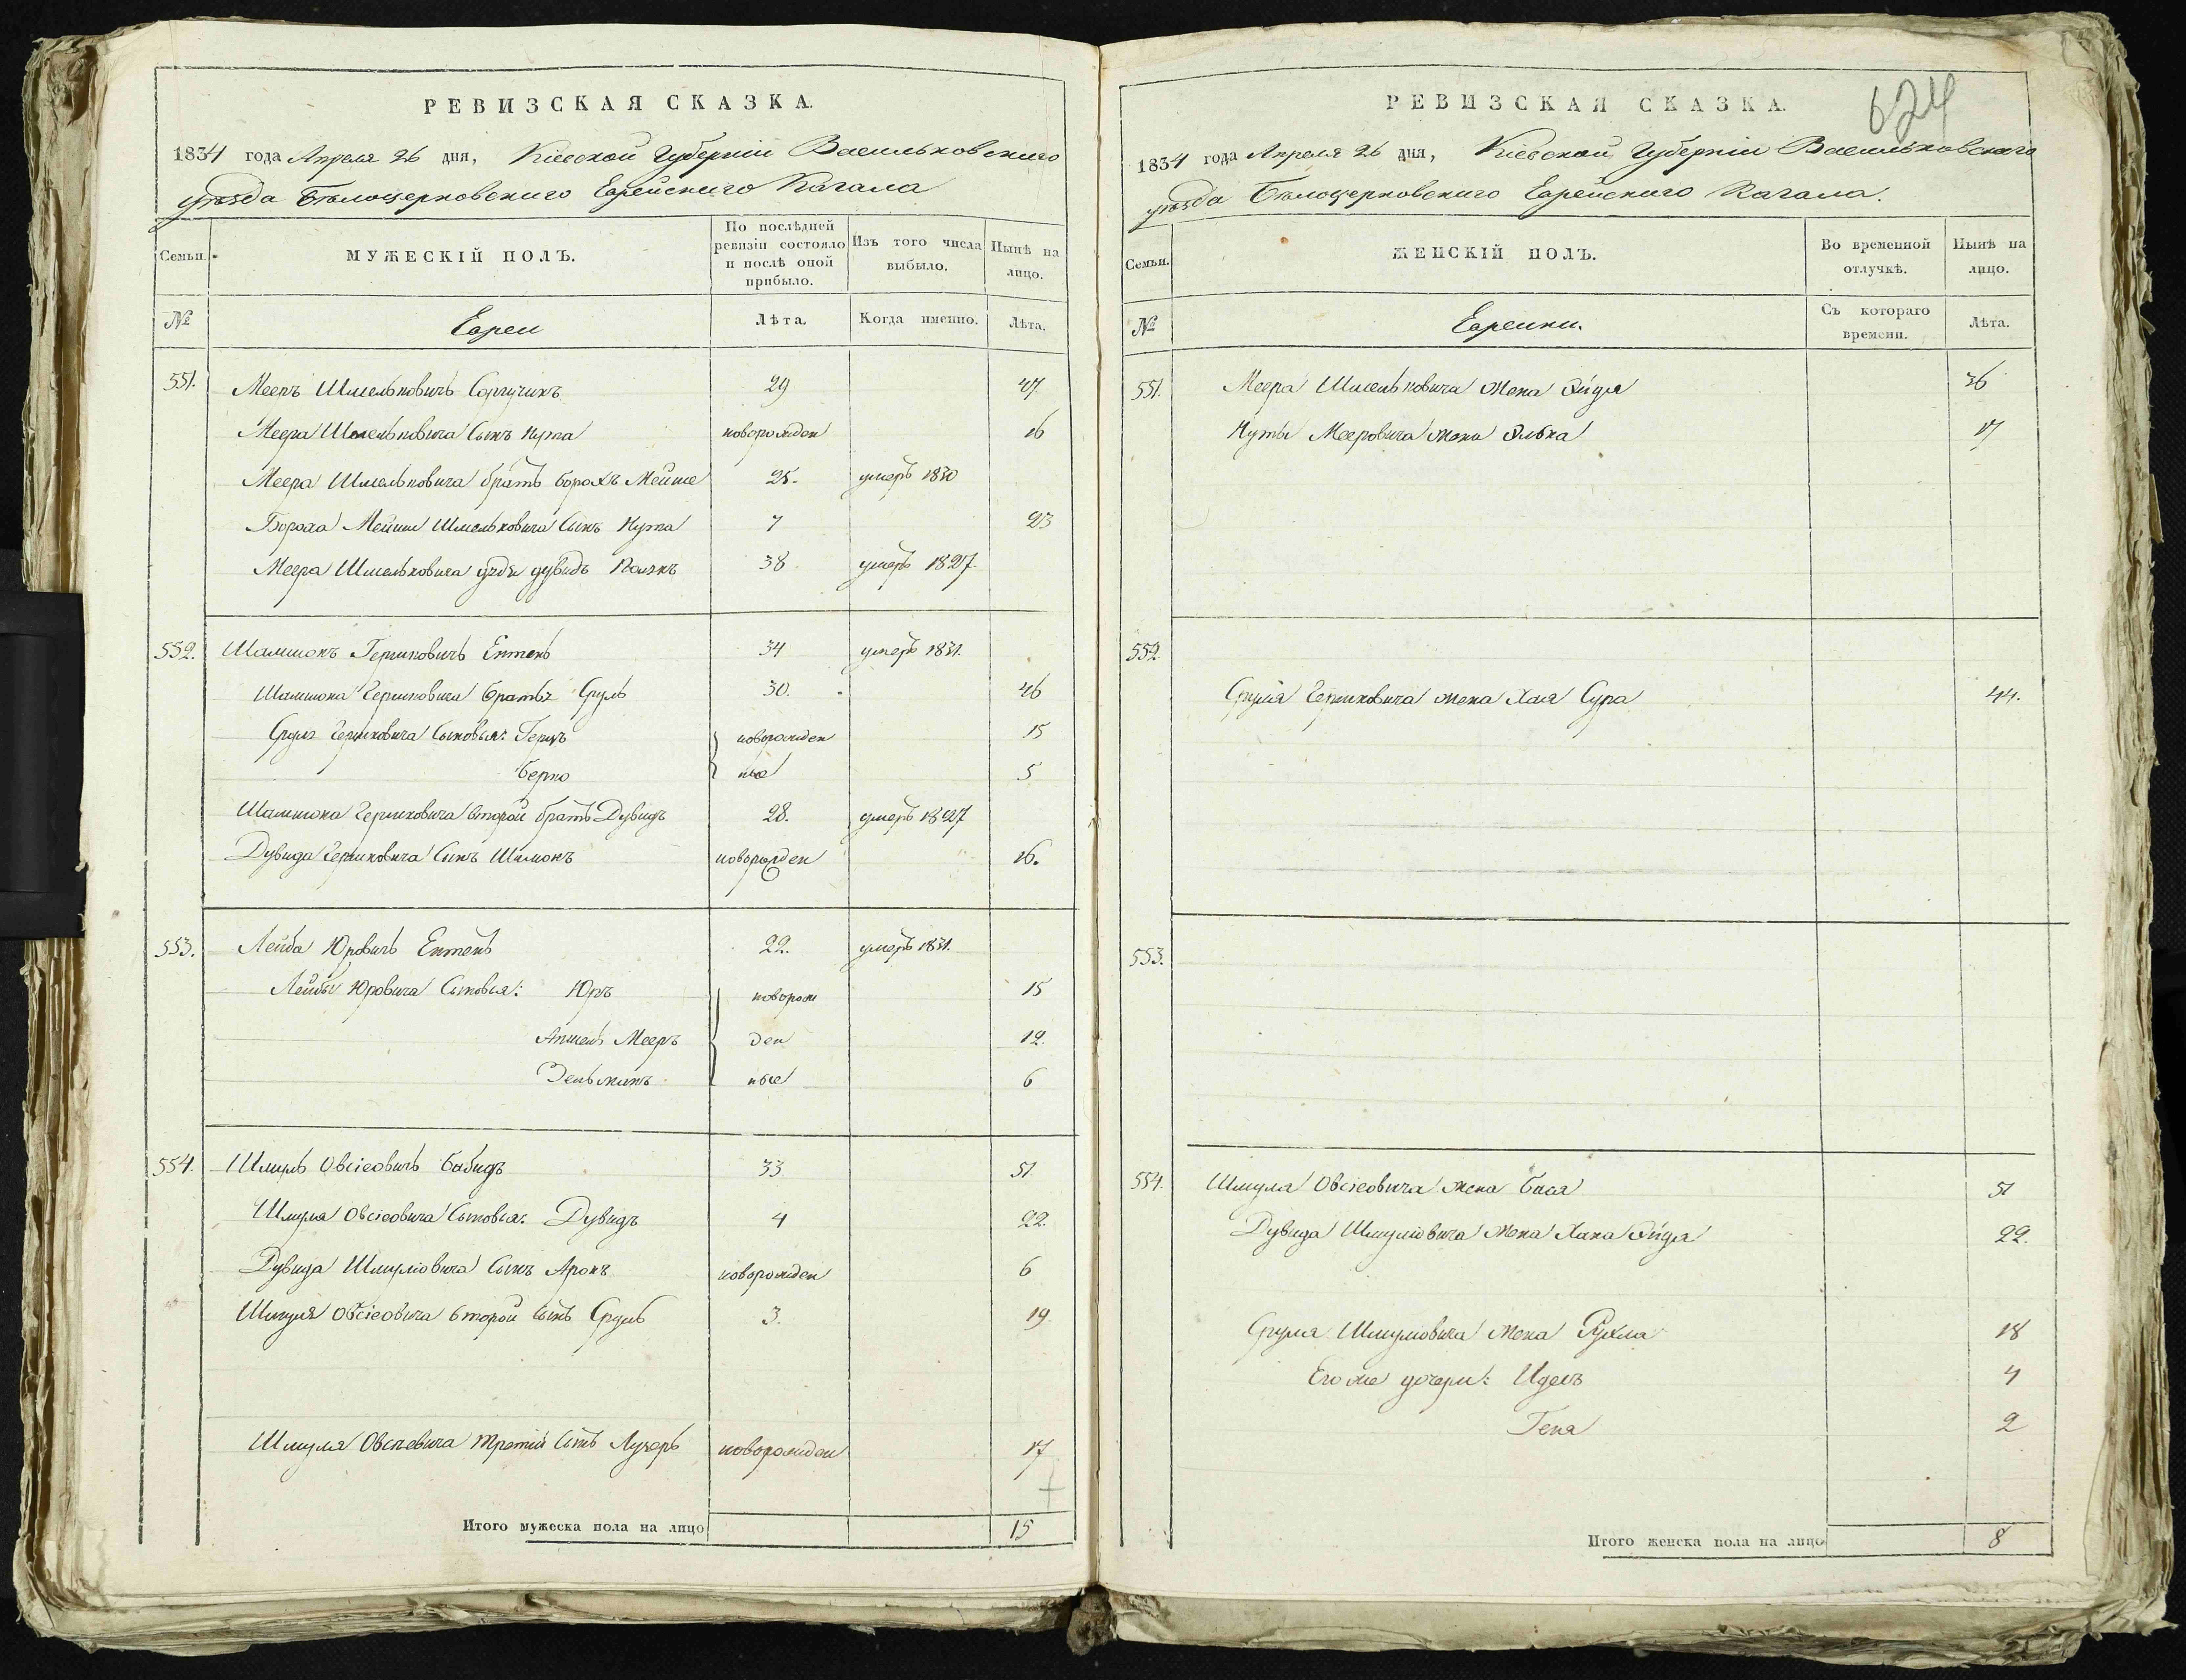 РЕВИЗСКАЯ СКАЗКА.
1834 года Апреля 26 дня, Кіевской Губерніи Васильковского
уѣзда Бѣлоцерковского Еврейского Кагала
Семьи. МУЖЕСКІЙ ПОЛЪ. По послѣдней ревизіи состояло и послѣ оной прибыло. Изъ того числа выбыло. Нынѣ на лицо.
№ Евреи Лѣта. Когда именно. Лѣта.
551. Мееръ Шмельковичъ 29 47
Меера Шмельковича Сынъ Нута новорожден 16
Меера Шмельковича братъ Борохъ Мейше 25. умеръ 1830
Бороха Мейши Шмельковича Сынъ Нута 7 23
Меера Шмельковича дядя дувидъ 38 умеръ 1827.
552. Шамшонъ Гершковичъ Ентенъ 34 умеръ 1831.
Шамшона Гершковича братья Сруль 30. 46
Сруля Гершковича Сыновья: Гершъ новорожден 15
Берко ные 5
Шамшона Гершковича второй братъ Дувидъ 28. умеръ 1827
Дувида Гершковича Сынъ Шимонъ новорожден 16.
553. Лейба Юровичъ Ентенъ 22. умеръ 1831.
Лейбы Юровича Сыновья: Юръ новорож 15
Аншель Мееръ ден 12.
Зельманъ ные 6
554. Шмуль Овсіевичъ 33 51
Шмуля Овсіовича Сыновья: Дувидъ 4 22.
Дувида Шмуліовича Сынъ Аронъ новорожден 6
Шмуля Овсіовича второй сынъ Сруль 3. 19.
Шмуля Овсіевича третій сынъ Лузеръ новорожден 17
Итого мужеска пола на лицо 15
624
РЕВИЗСКАЯ СКАЗКА.
1834 года Апреля 26 дня, Кіевской Губерніи Васильковского
уѣзда Бѣлоцерковского Еврейского Кагала.
Семьи. ЖЕНСКІЙ ПОЛЪ. Во временной отлучкѣ. Нынѣ на лицо.
№ Еврейки. Съ котораго времени. Лѣта.
551. Меера Шмельковича жена Эйдля 36
Нуты Мееровича жена Элька 17
552.
Сруля Гершковича жена Хая Сура 44.
553.
554. Шмуля Овсіовича жена Бася 51
Дувида Шмуліовича жена Хана Эйдля 22.
Сруля Шмуліовича жена Рухля 18
Его же дочери: Идесъ 4
Геня 2
Итого женска пола на лицо 8